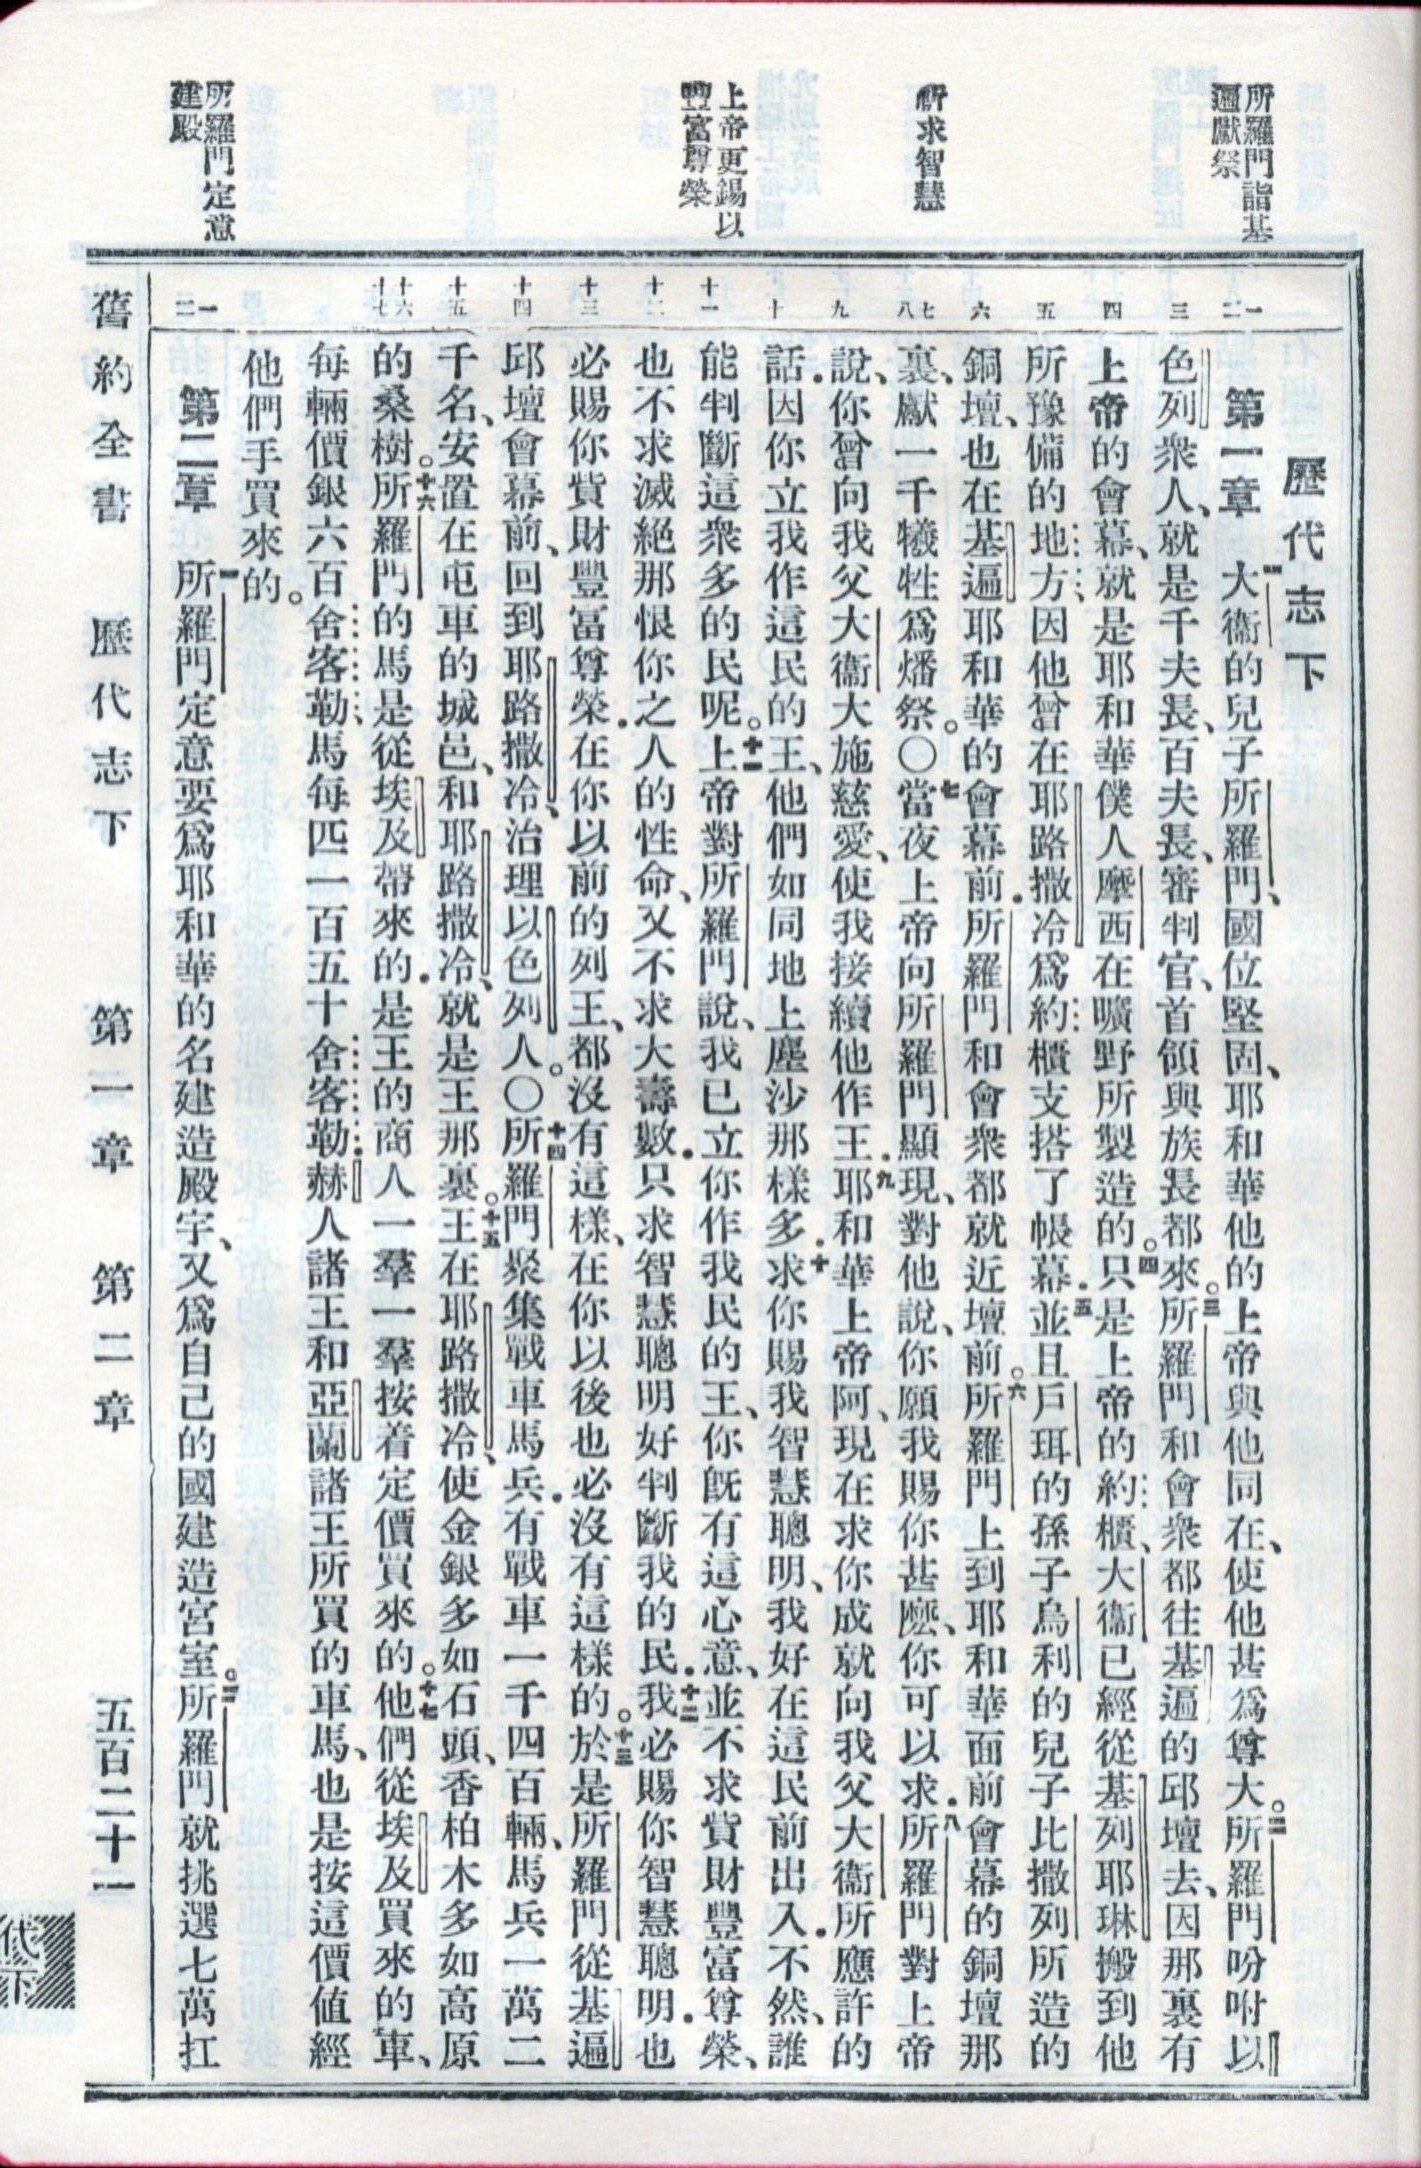 所羅門詣基
遍獻祭
祈求智慧
上帝更錫以
豐富尊榮
所羅門定意
建殿
一
二
三
四
五
六
七
八
九
十
十一
十二
十三
十四
十五
十六
十七
一
二
歷代志下
第一章 一大衞的兒子所羅門、國位堅固、耶和華他的上帝與他同在、使他甚爲尊大。二所羅門吩咐以
色列衆人、就是千夫長、百夫長、審判官、首領與族長都來。三所羅門和會衆都往基遍的邱壇去、因那裏有
上帝的會幕、就是耶和華僕人摩西在曠野所製造的。四只是上帝的約櫃、大衞已經從基列耶琳搬到他
所豫備的地方、因他曾在耶路撒冷爲約櫃支搭了帳幕．五並且戶珥的孫子烏利的兒子比撒列所造的
銅壇、也在基遍耶和華的會幕前．所羅門和會衆都就近壇前。六所羅門上到耶和華面前會幕的銅壇那
裏、獻一千犧牲爲燔祭。○七當夜上帝向所羅門顯現、對他說、你願我賜你甚麽、你可以求．八所羅門對上帝
說、你曾向我父大衞大施慈愛、使我接續他作王．九耶和華上帝阿、現在求你成就向我父大衞所應許的
話．因你立我作這民的王、他們如同地上塵沙那樣多．十求你賜我智慧聰明、我好在這民前出入．不然、誰
能判斷這衆多的民呢。十一上帝對所羅門說、我已立你作我民的王、你旣有這心意、並不求貲財豐富尊榮、
也不求滅絕那恨你之人的性命、又不求大壽數．只求智慧聰明好判斷我的民．十二我必賜你智慧聰明．也
必賜你貲財豐富尊榮．在你以前的列王、都沒有這樣、在你以後也必沒有這樣的。十三於是所羅門從基遍
邱壇會幕前、回到耶路撒冷、治理以色列人。○十四所羅門聚集戰車馬兵．有戰車一千四百輛、馬兵一萬二
千名、安置在屯車的城邑、和耶路撒冷、就是王那裏。十五王在耶路撒冷、使金銀多如石頭、香柏木多如高原
的桑樹。十六所羅門的馬是從埃及帶來的．是王的商人一羣一羣按着定價買來的。十七他們從埃及買來的車、
每輛價銀六百舍客勒、馬每匹一百五十舍客勒．赫人諸王和亞蘭諸王所買的車馬、也是按這價值經
他們手買來的。
第二章 一所羅門定意要爲耶和華的名建造殿宇、又爲自己的國建造宮室。二所羅門就挑選七萬扛
舊約全書 歷代志下 第一章 第二章 五百二十一
代下